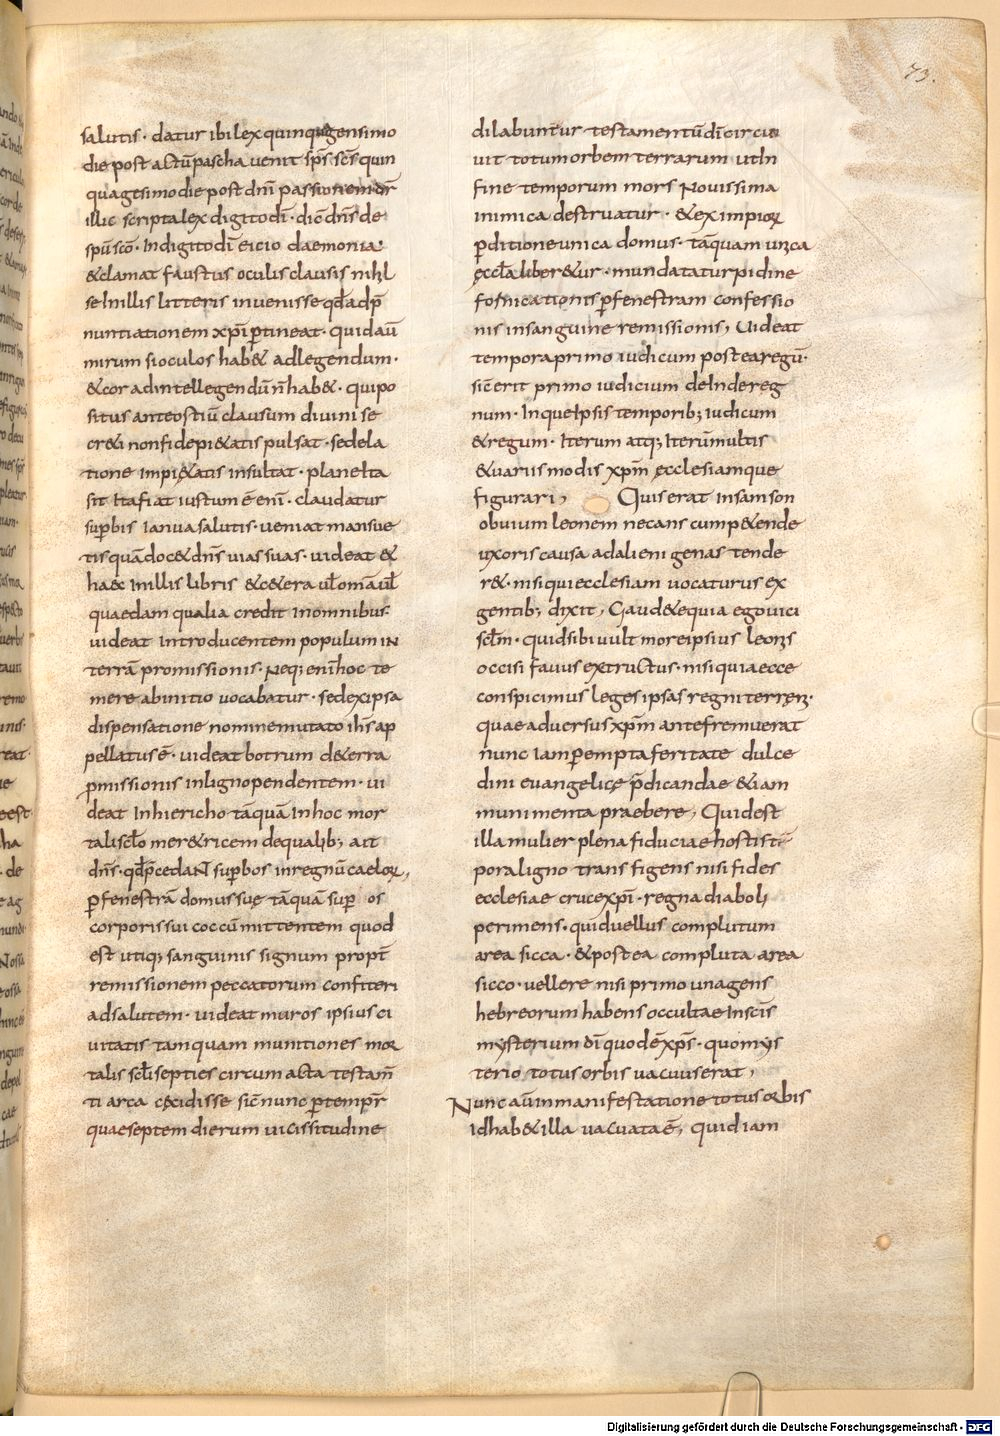 73.
salutis · datur ibi lex quinquagensimo
die post actū pascha uenit sp̄s sc̄s quin
quagesimo die post dn̄i passionem
illic scripta lex digito dī · dic̄ dn̄s de
spū scō · In digito dī eicio daemonia·
& clamat faustus oculis clausis nihl
se In illis litteris inuenisse qđ ad p̄
nuntiationem xp̄i ꝑtineat · quid aū
mirum si oculos hab& ad legendum ·
& cor ad intellegendū n̄ hab& · qui po
situs ante ostiū clausum diuini se
cr&i non fide pi&atis pulsat · sed ela
tione impi&atis insultat · plane Ita
sit Ita fiat iustum ē eni̅ · claudatur
suꝑbis Ianua salutis · ueniat mansue
tis quā doc& dn̄s uias suas · uideat &
haec In illis libris & c&era ul̄ om̄ia ul̄
quaedam qualia credit In omnibus·
uideat Introducentem populum IN
terrā promissionis · Neq; eni̅ hoc te
mere ab initio uocabatur · sed ex ipsa
dispensatione nomine mutato ih̄s ap
pellatus ē · uideat botrum de terra
ꝓmissionis in ligno pendentem · ui
deat In hiericho tāquā In hoc mor
tali sclo mer&ricem de qualib; ait
dn̄s · qđ p̄cedaNt suꝑbos in regnū caeloꝝ,
ꝑ fenestrā domus suę tāquā suꝑ os
corporis sui coccū mittentem quod
est utiq; sanguinis signum propt̄
remissionem peccatorum confiteri
ad salutem · uideat muros ipsius ci
uitatis tamquam munitiones mor
talis scl̄i septies circum acta testam̄
ti arca cecidisse sic̄ nunc ꝑ tempr̄
quae septem dierum uicissitudine
dilabuntur testamentū dī circu
uit totum orbem terrarum ut In
fine temporum mors Nouissima
inimica destruatur · & ex impioꝝ
ꝑditione unica domus · tāquam unica
ęcclā liber&ur · mundata turpidine
fornicationis ꝑ fenestram confessio
nis in sanguine remissionis, Uideat
tempora primo iudicum postea regū·
sic̄ erit primo iudicium deInde reg
num · In queIpsis temporib; Iudicum
& regum · Iterum atq; Iterū multis
& uariis modis xp̄m ęcclesiamque
figurari, Quis erat In samson
obuium leonem necans cum p&ende
uxoris causa ad alienigenas tende
r& · nisi qui ecclesiam uocaturus ex
gentib; dixit, Gaud&e quia ego uici
sclm̄ · quid sibi uult more ipsius leonis
occisi fauus extructus · nisi quia ecce
conspicimus leges ipsas regni terreni·
quae aduersus xp̄m ante fremuerat
nunc Iam ꝑempta feritate dulce
dini euangelicę p̄dicandae &iam
munimenta praebere, Quid est
illa mulier plena fiduciae hostis tē
pora ligno transfigens nisi fides
ecclesiae cruce xp̄i · regna diaboli
perimens · quid uellus complutum
area sicca · & postea compluta area
sicco uellere nisi primo una gens
hebreorum habens occultae In sc̄is
mysterium dī quod ē xp̄s · quo mys
terio totus orbis uacuus erat,
Nunc aūt in manifestatione totus orbis
Id hab& illa uacuata ē, quid iam
Digitalisierung gefördert durch die Deutsche Forschungsgemeinschaft - DFG